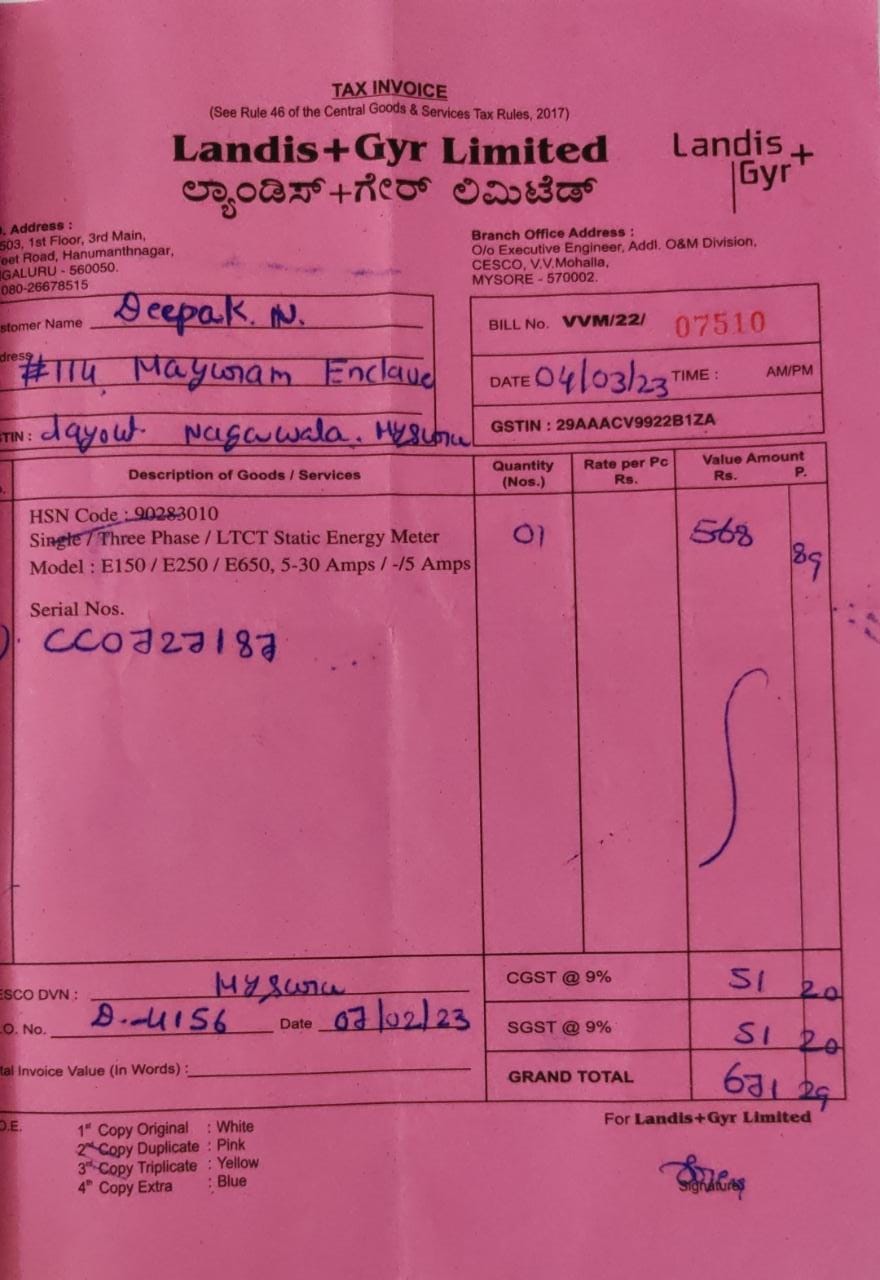 TAX INVOICE
(See Rule 46 of the Central Goods & Services Tax Rules, 2017)
Landis+Gyr Limited
ಲ್ಯಾಂಡಿಸ್+ಗೇರ್ ಲಿಮಿಟೆಡ್
Landis+
Gyr
. Address :
503, 1st Floor, 3rd Main,
eet Road, Hanumanthnagar,
GALURU - 560050.
080-26678515
Branch Office Address :
O/o Executive Engineer, Addl. O&M Division,
CESCO, V.V.Mohalla,
MYSORE - 570002.
stomer Name Deepak. N.
dress #114, Mayuram Enclave
TIN : Layout Nagawala. Mysuru
BILL No. VVM/22/ 07510
DATE 04/03/23 TIME : AM/PM
GSTIN : 29AAACV9922B1ZA
Description of Goods / Services Quantity (Nos.) Rate per Pc Rs. Value Amount Rs. P.
HSN Code : 90283010
Single / Three Phase / LTCT Static Energy Meter 01 568 89
Model : E150 / E250 / E650, 5-30 Amps / -/5 Amps
Serial Nos.
). CC0727187
ESCO DVN : Mysuru
CGST @ 9% 51 20
.O. No. D-4156 Date 07/02/23
SGST @ 9% 51 20
tal Invoice Value (In Words) :
GRAND TOTAL 671 29
O.E.
1st Copy Original : White
2nd Copy Duplicate : Pink
3rd Copy Triplicate : Yellow
4th Copy Extra : Blue
For Landis+Gyr Limited
Signature